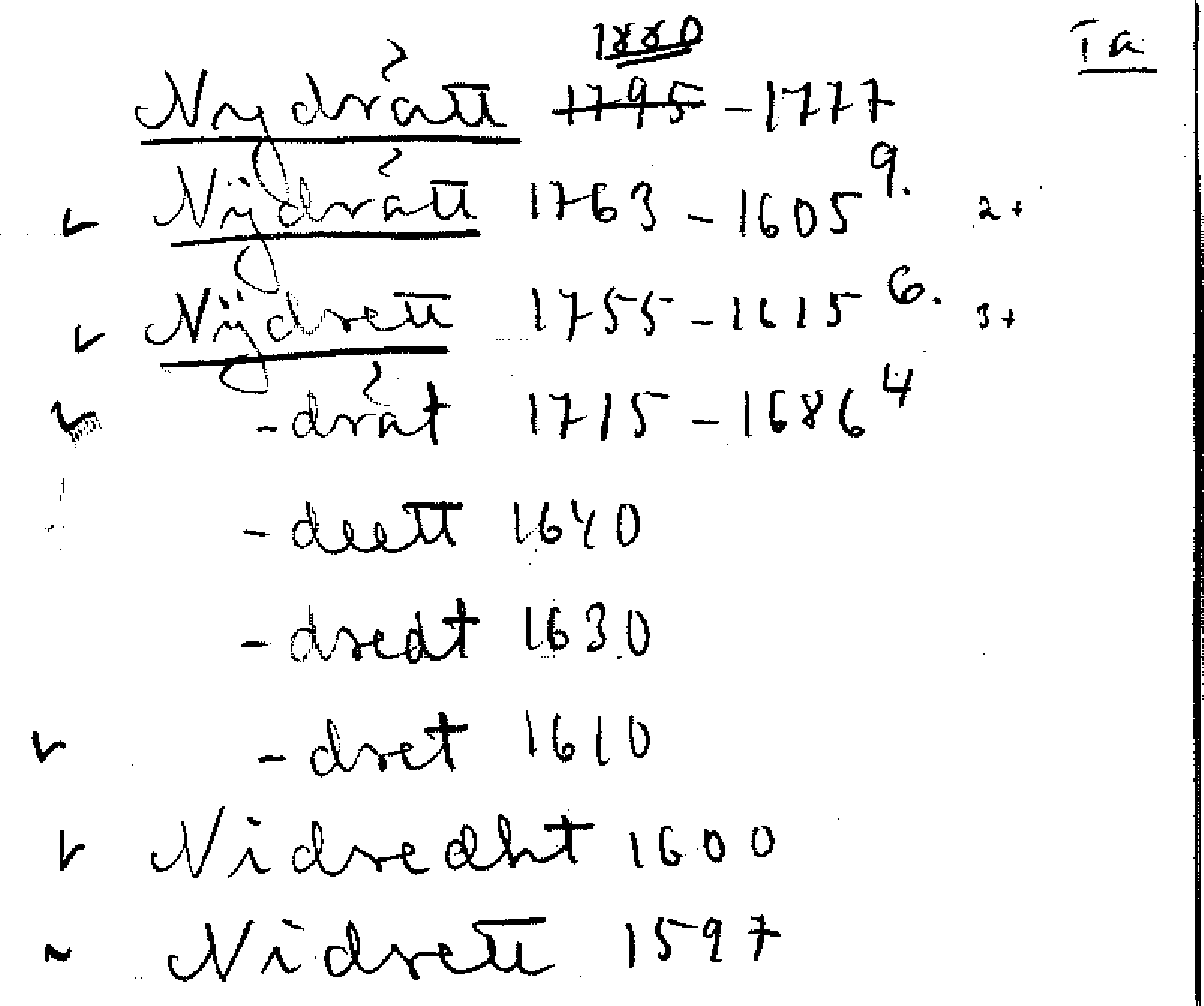 1880 Ta
Nydrått 1795 - 1777
Nÿdrått 1763 - 1605 9. 2+
Nÿdrett 1755 - 1615 6. 3+
- dråt 1715 - 1686 4
- dreett 1640
- dredt 1630
- dret 1610
Nidredht 1600
Nidrett 1597